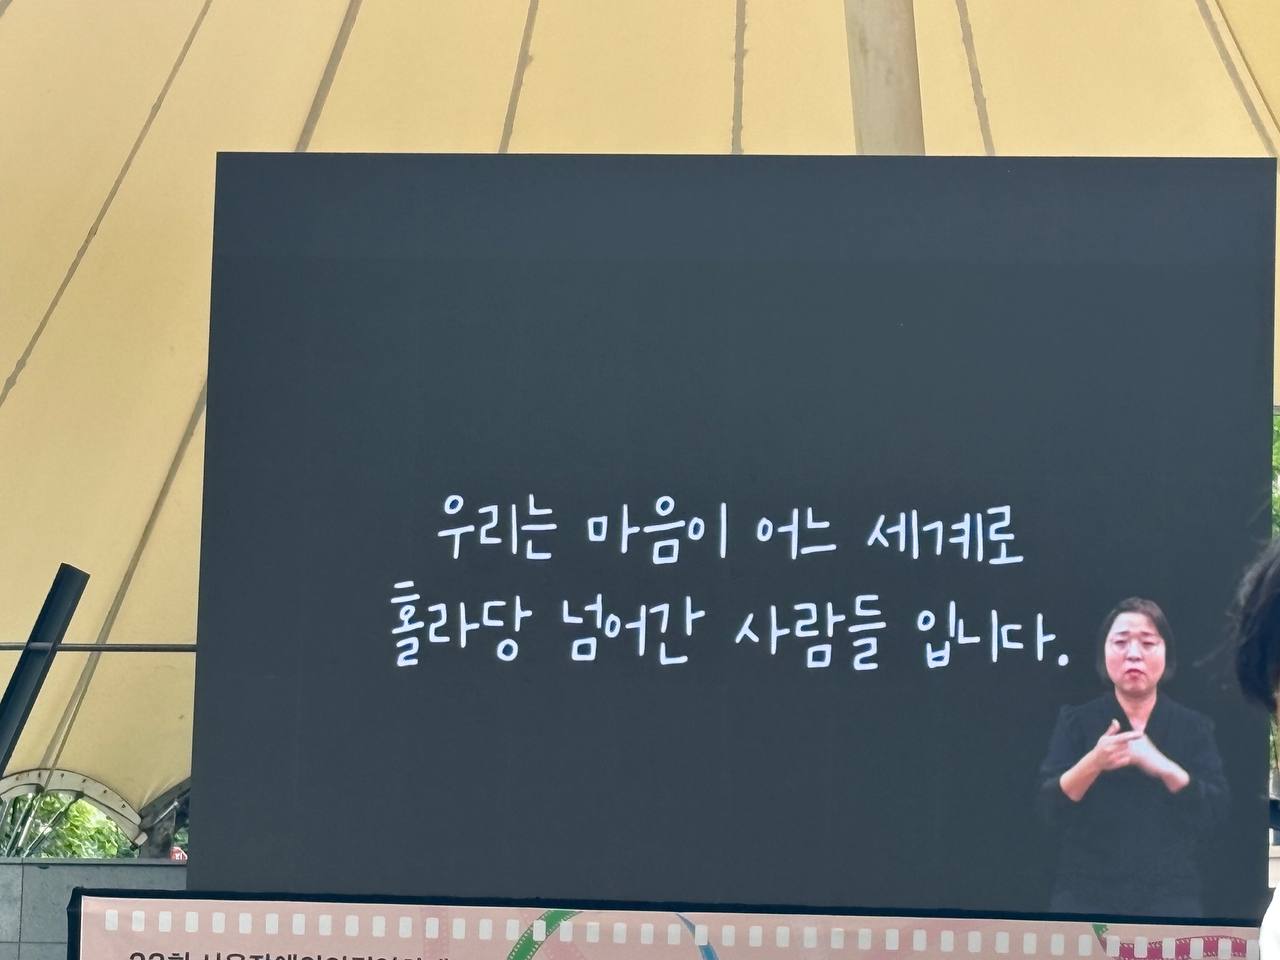 우리는 마음이 어느 세계로
홀라당 넘어간 사람들 입니다.